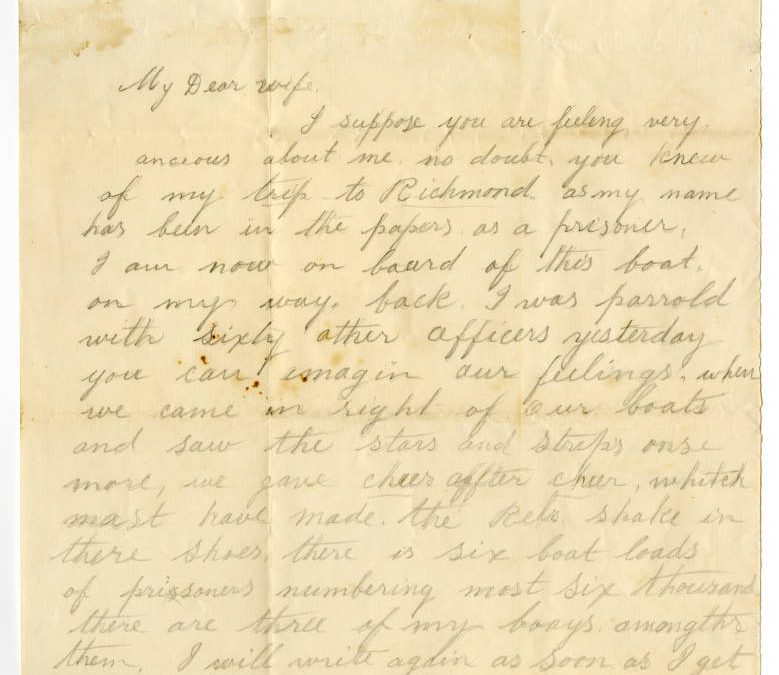 My Dear wife.
I suppose you are feeling very.
ancious about me. no doubt. you knew
of my trip to Richmond. as my name
has been in the papers. as a prisoner.
I am now on board of this boat.
on my way. back. I was parrold
with sixty other officers yesterday
you can imagin our feelings. when
we came in sight of our boats
and saw the stars and strips onse
more, we gave cheer affter cheer, whitch
mast have made. the Rebs shake in
there shoes. there is six boat loads
of prissoners numbering most six thousand
there are three of my boays. amongthr
them. I will write again as soon as I get